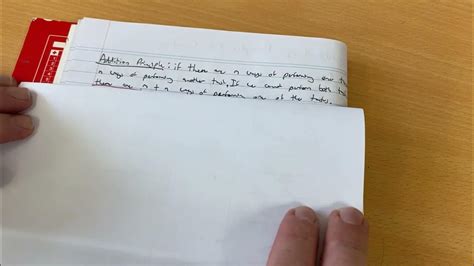 Addition Principle: if there are n ways of performing one
n ways of performing another task. If we cannot perform both
there are n + n ways of performing one of the tasks.